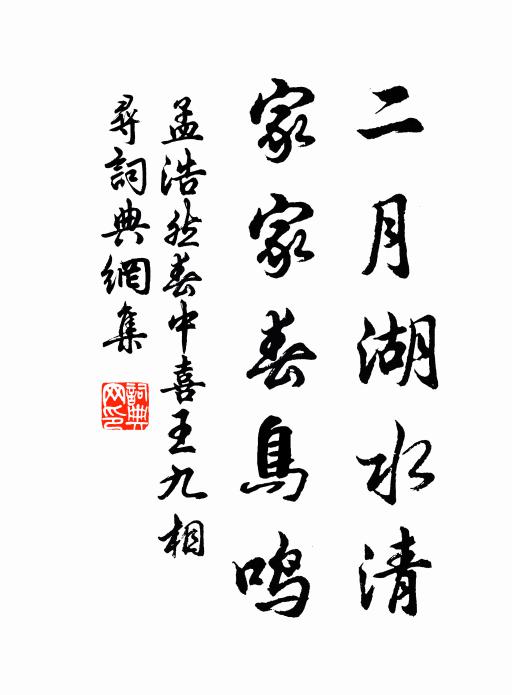 二月湖水清
家家春鳥鳴
孟浩然春中喜王九相
尋詞典網集
詞典網印